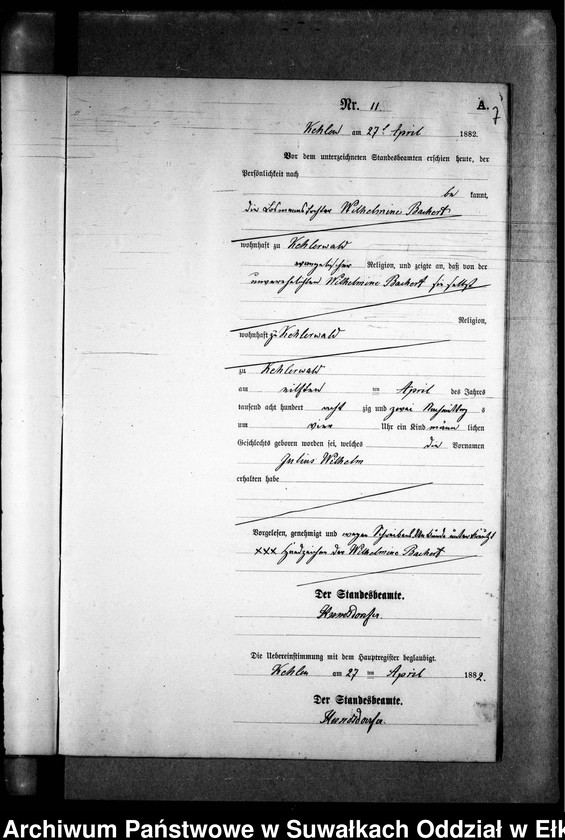 Nr. 11.
A.
7
Kehlen am 27t April 1882.
Vor dem unterzeichneten Standesbeamten erschien heute, der
Persönlichkeit nach
be kannt,
die Losmannstochter Wilhelmine Backert
wohnhaft zu Kehlerwald
evangelischer Religion, und zeigte an, daß von der
unverehelichten Wilhelmine Backert sie selbst
Religion,
wohnhaft zu Kehlerwald
zu Kehlerwald
am eilften im April des Jahres
tausend acht hundert acht zig und zwei Nachmittag s
um vier Uhr ein Kind männ lichen
Geschlechts geboren worden sei, welches die Vornamen
Julius Wilhelm
erhalten habe
Vorgelesen, genehmigt und wegen Schreibens Unkunde unterkreuzt
XXX Handzeichen der Wilhelmine Backert
Der Standesbeamte.
Die Uebereinstimmung mit dem Hauptregister beglaubigt.
Kehlen am 27 im April 1882.
Der Standesbeamte.
Archiwum Państwowe w Suwałkach Oddział w Ełk